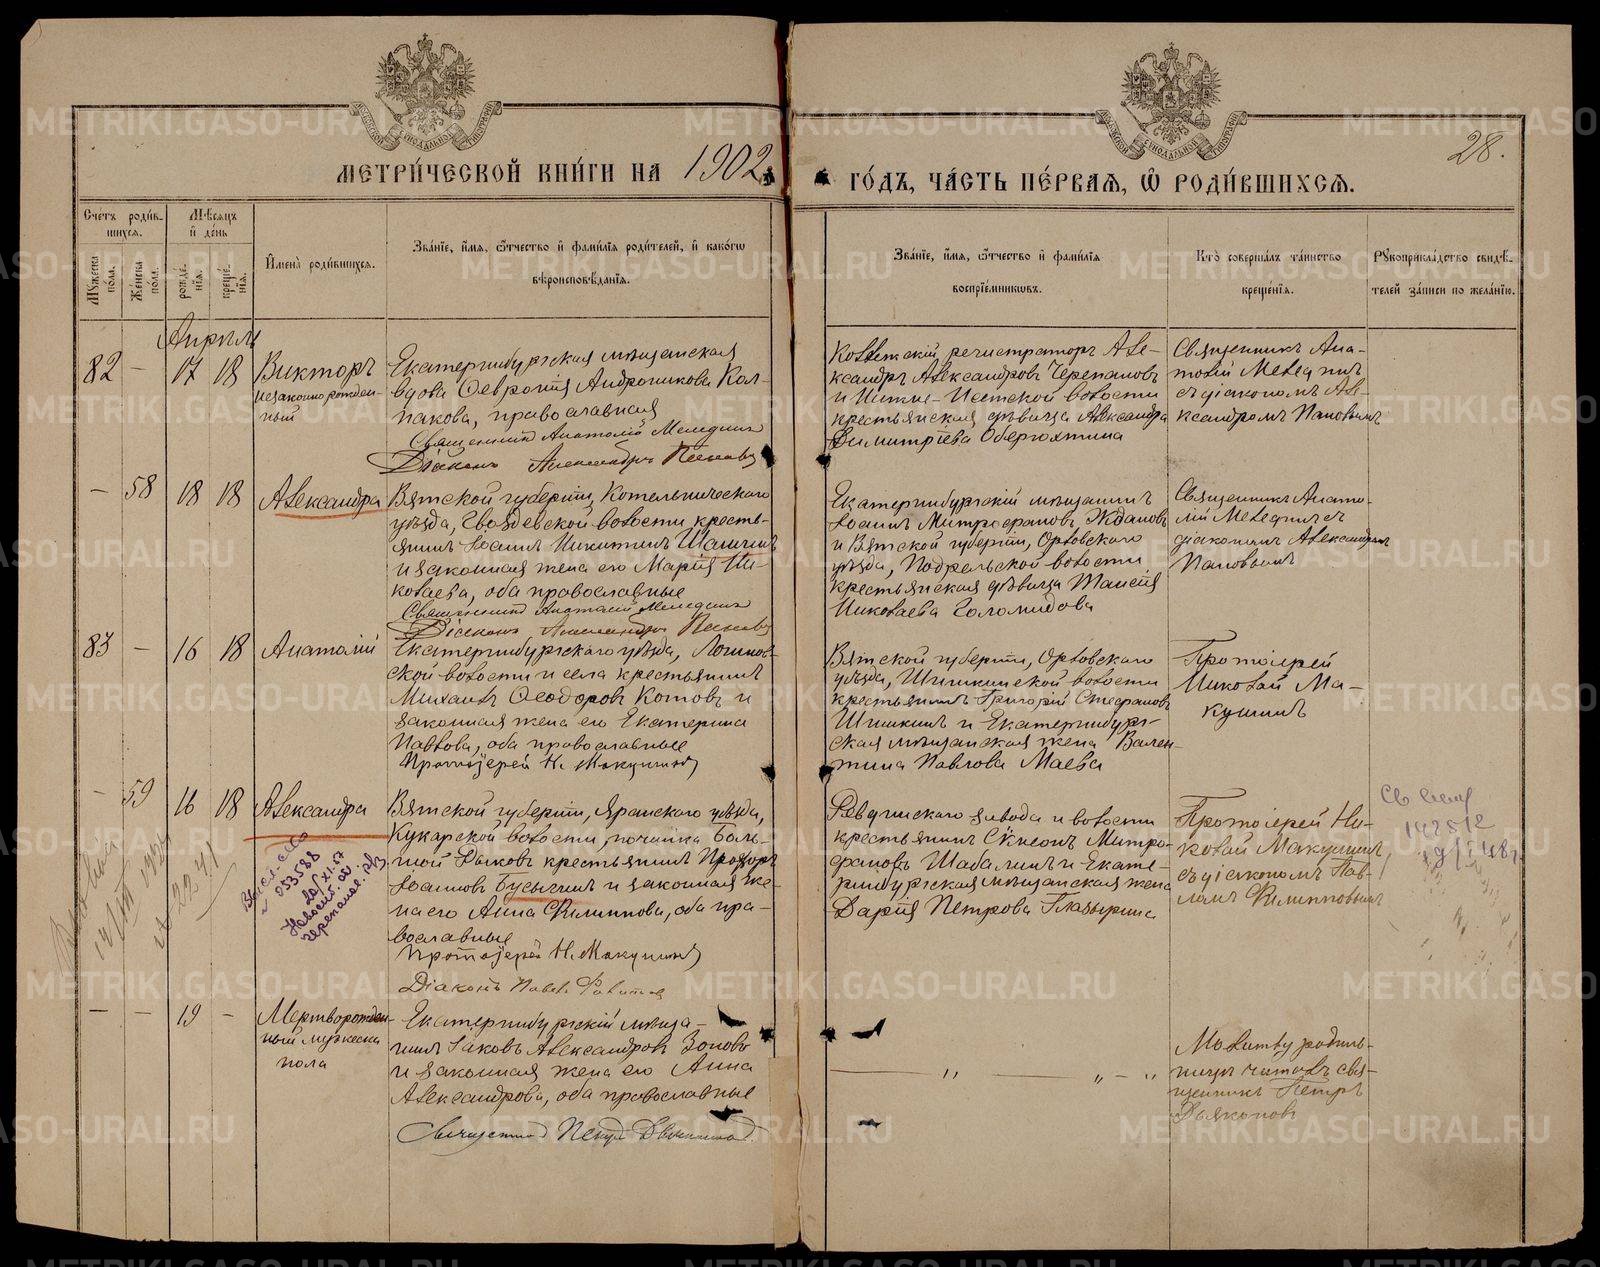 МЕТРИ́ЧЕСКОЙ КНИ́ГИ НА 1902
ГО́ДЪ, ЧА́СТЬ ПЕ́РВАЯ, Ѽ РОДИ́ВШИХСѦ.
28.
Сче́тъ роди́в-
шихся.
Мѣ́сяцъ
и де́нь
Мꙋ́жеска
по́ла.
Же́нска
по́ла.
рожде́-
нїя.
креще́-
нїя.
И҆мена̀ роди́вшихся.
Зва́нїе, и҆́мя, ѻ҆́тчество и҆ фами́лїя роди́телей, и҆ како́гѡ
вѣроисповѣ́данїя.
Зва́нїе, и҆́мя, ѻ҆́тчество и҆ фами́лїя
воспрїе́мникѡвъ.
Кто̀ соверша́лъ та́инство
креще́нїя.
Рꙋкоприкла́дство свидѣ́-
телей за́писи по жела́нїю.
Апрѣль
82 — 17 18
Викторъ
незаконнорожден-
ный
Екатеринбургская мѣщанская
вдова Февронія Андроникова Кол-
пакова, православная
Священникъ Анатолій Меледин
Діаконъ Александръ Пановъ
Коллежскій регистраторъ Але-
ксандръ Александровъ Черепановъ
и Нижне-Исетской волости
крестьянская дѣвица Александра
Димитріева Оберюхтина
Священникъ Ана-
толій Меледин
съ діакономъ Але-
ксандромъ Пановымъ
— 58 18 18
Александра
Вятской губерніи, Котельническаго
уѣзда, Гвоздевской волости кресть-
янинъ Іоаннъ Никитинъ
и законная жена его Марія Ни-
колаева, оба православные
Священникъ Анатолій Меледин
Діаконъ Александръ Пановъ
Екатеринбургскій мѣщанинъ
Іоаннъ Митрофановъ Ждановъ
и Вятской губерніи, Орловскаго
уѣзда, Подрельской волости
крестьянская дѣвица Таисія
Николаева Голомидова
Священникъ Анато-
лій Меледин съ
діакономъ Александромъ
Пановымъ
83 — 16 18
Анатолій
Екатеринбургскаго уѣзда, Логинов-
ской волости и села крестьянинъ
Михаилъ Ѳеодоровъ Котовъ и
законная жена его Екатерина
Павлова, оба православные
Протоіерей Н. Макушинъ
Вятской губерніи, Орловскаго
уѣзда, Шишкинской волости
крестьянинъ Григорій Стефановъ
Шишкинъ и Екатеринбург-
ская мѣщанская жена Вален-
тина Павлова Маева
Протоіерей
Николай Ма-
кушинъ
— 59 16 18
Александра
Вятской губерніи, Яранскаго уѣзда,
Кукарской волости, починка Боль-
шой Рыковъ крестьянинъ Прохоръ
Іоанновъ Бусыгинъ и законная же-
на его Анна Филиппова, оба пра-
вославные
Протоіерей Н. Макушинъ
Діаконъ Павелъ
Ревдинскаго завода и волости
крестьянинъ Сѵмеонъ Митро-
фановъ Шабалинъ и Екате-
ринбургская мѣщанская жена
Дарія Петрова Глазырина
Протоіерей Ни-
колай Макушинъ
съ діакономъ Пав-
ломъ Филипповымъ
— — 19 —
Мертворожден-
ный мужеска
пола
Екатеринбургскій мѣща-
нинъ Іаковъ Александровъ Зоновъ
и законная жена его Анна
Александрова, оба православные
Священникъ Петръ Дьяконовъ
Молитву родиль-
ницѣ читалъ свя-
щенникъ Петръ
Дьяконовъ